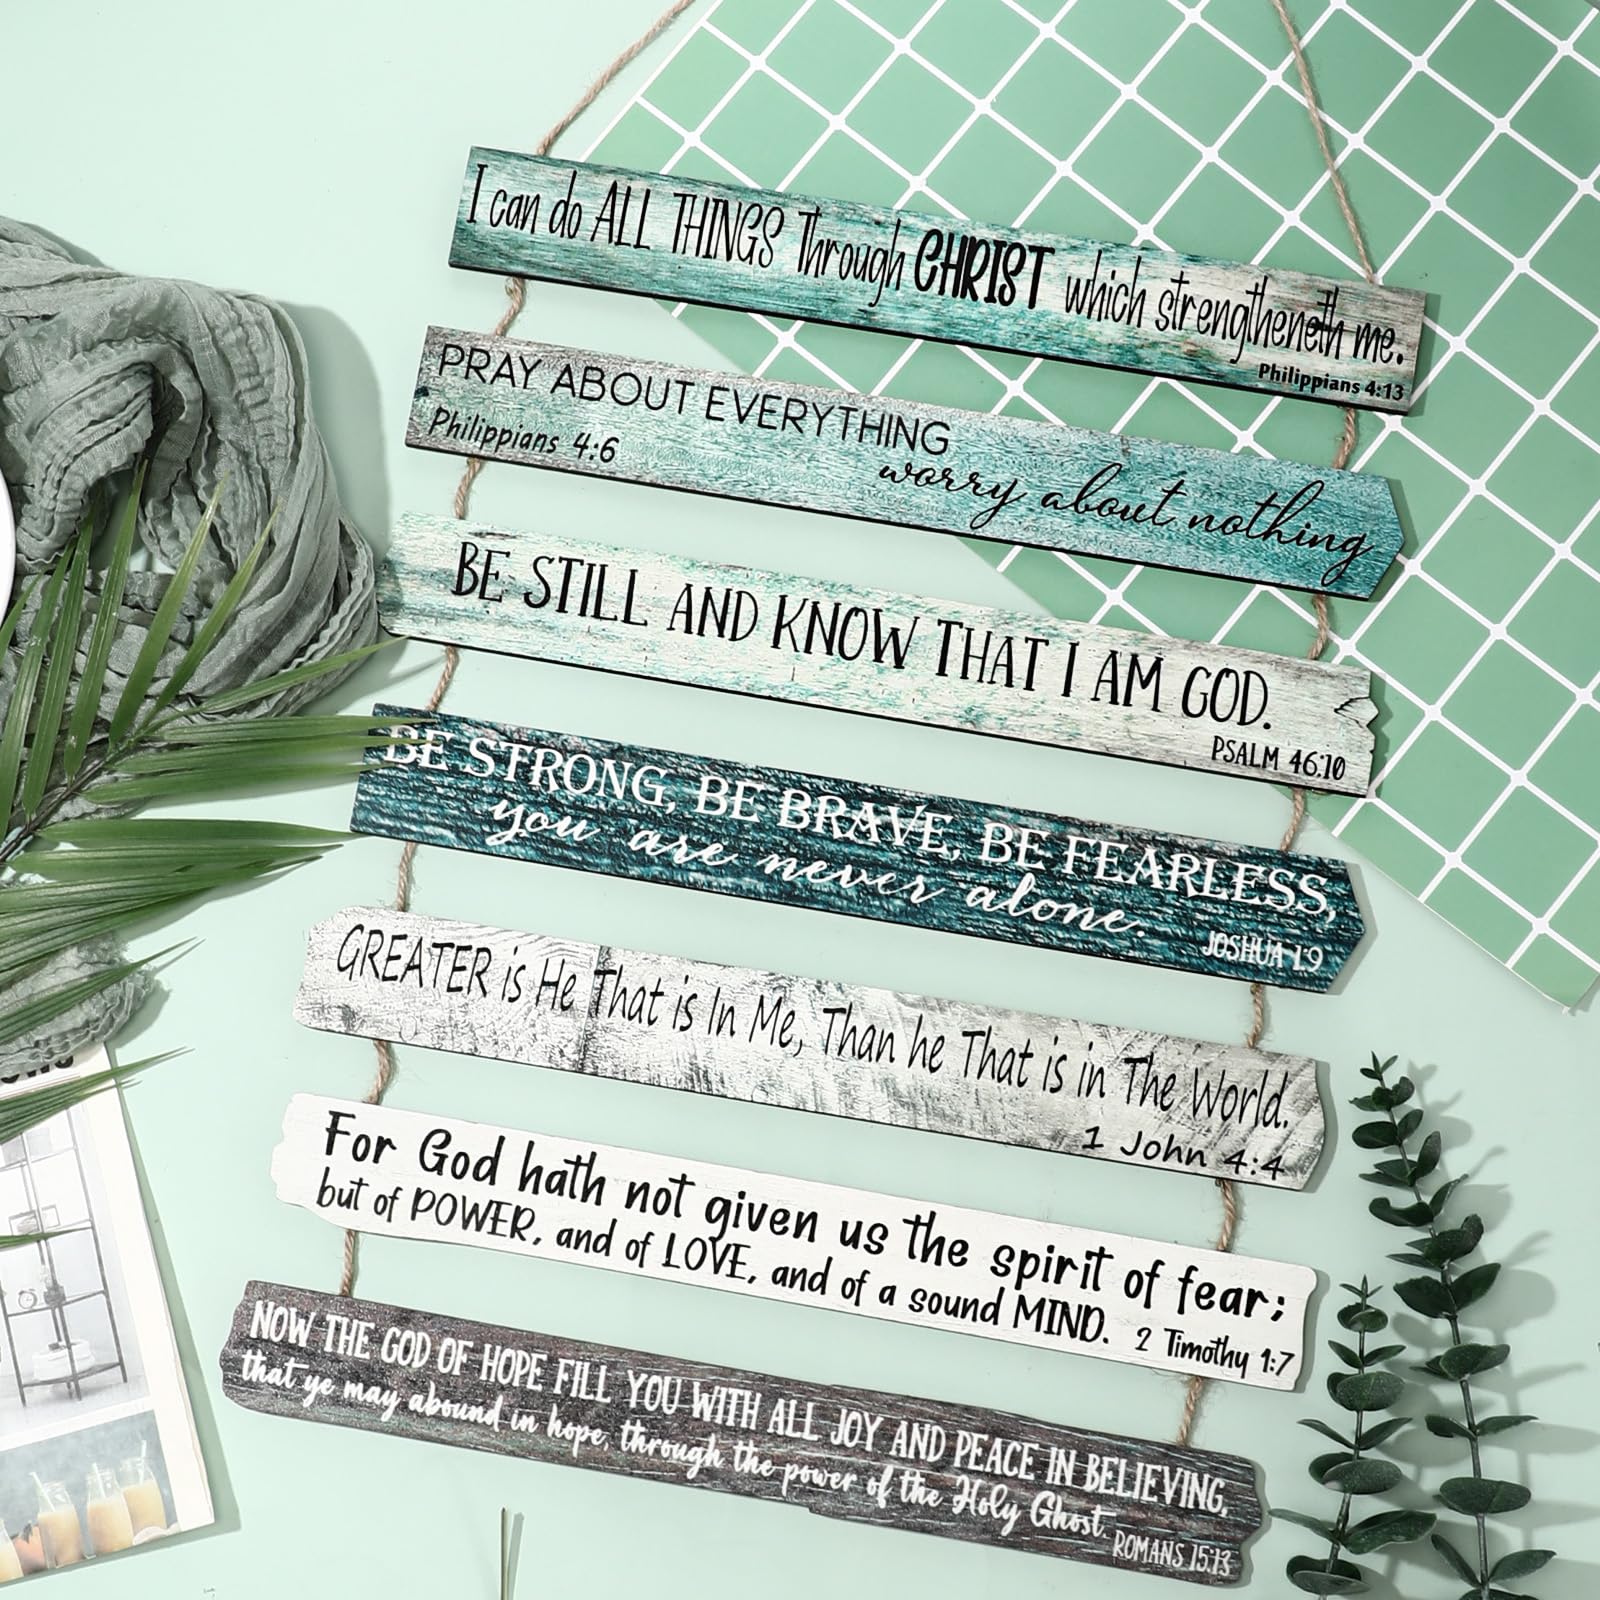 I can do ALL THINGS Through CHRIST which strengtheneth me.
Philippians 4:13
PRAY ABOUT EVERYTHING
worry about nothing
Philippians 4:6
BE STILL AND KNOW THAT I AM GOD.
PSALM 46:10
BE STRONG, BE BRAVE, BE FEARLESS,
you are never alone.
JOSHUA 1:9
GREATER is He That is In Me, Than he That is in The World.
1 John 4:4
For God hath not given us the spirit of fear;
but of POWER, and of LOVE, and of a sound MIND.
2 Timothy 1:7
NOW THE GOD OF HOPE FILL YOU WITH ALL JOY AND PEACE IN BELIEVING,
that ye may abound in hope, through the power of the Holy Ghost.
ROMANS 15:13